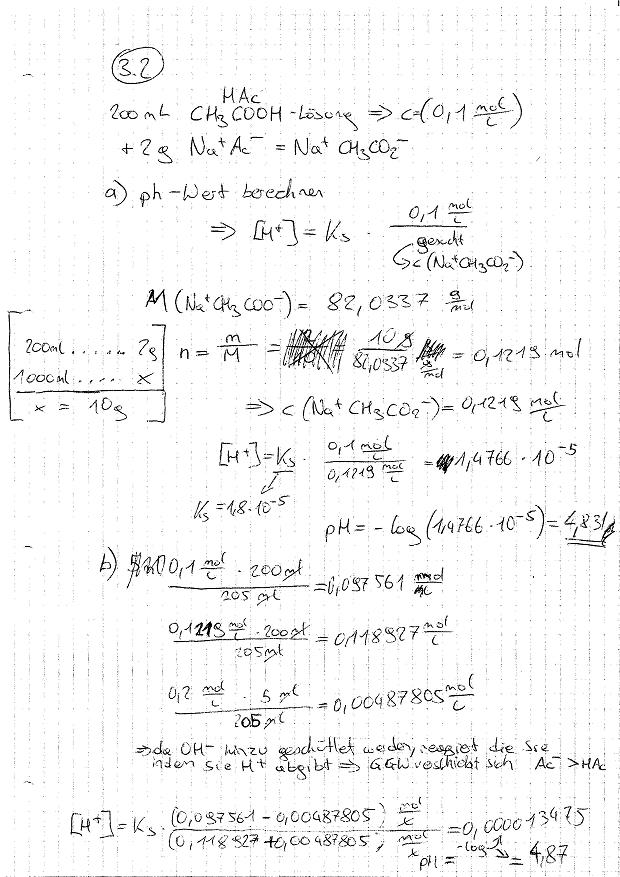 3.2
HAc
200 mL CH3COOH-Lösung ⇒ c=(0,1 mol/L)
+ 2g Na+Ac- = Na+ CH3CO2-
a) ph-Wert berechnen
⇒ [H+] = Ks · 0,1 mol/L / gesucht
↳ c(Na+CH3CO2-)
M(Na+CH3COO-) = 82,0337 g/mol
200ml ...... 2g
1000ml ..... x
x = 10g
n = m/M = 10g / 82,0337 g/mol = 0,1219 mol
⇒ c(Na+CH3CO2-) = 0,1219 mol/L
[H+] = Ks · 0,1 mol/L / 0,1219 mol/L = 1,4766 · 10^-5
Ks = 1,8·10^-5
pH = -log (1,4766·10^-5) = 4,831
b) 0,1 mol/L · 200 ml / 205 ml = 0,097561 mol/L
0,1219 mol/L · 200 ml / 205 ml = 0,118927 mol/L
0,2 mol/L · 5 ml / 205 ml = 0,00487805 mol/L
⇒ da OH- hinzu geschüttet werden, reagiert die Sre
indem sie H+ abgibt ⇒ GGW verschiebt sich Ac- > HAc
[H+] = Ks · (0,097561 - 0,00487805) mol/L / (0,118927 + 0,00487805) mol/L = 0,000013475
pH = -log = 4,87